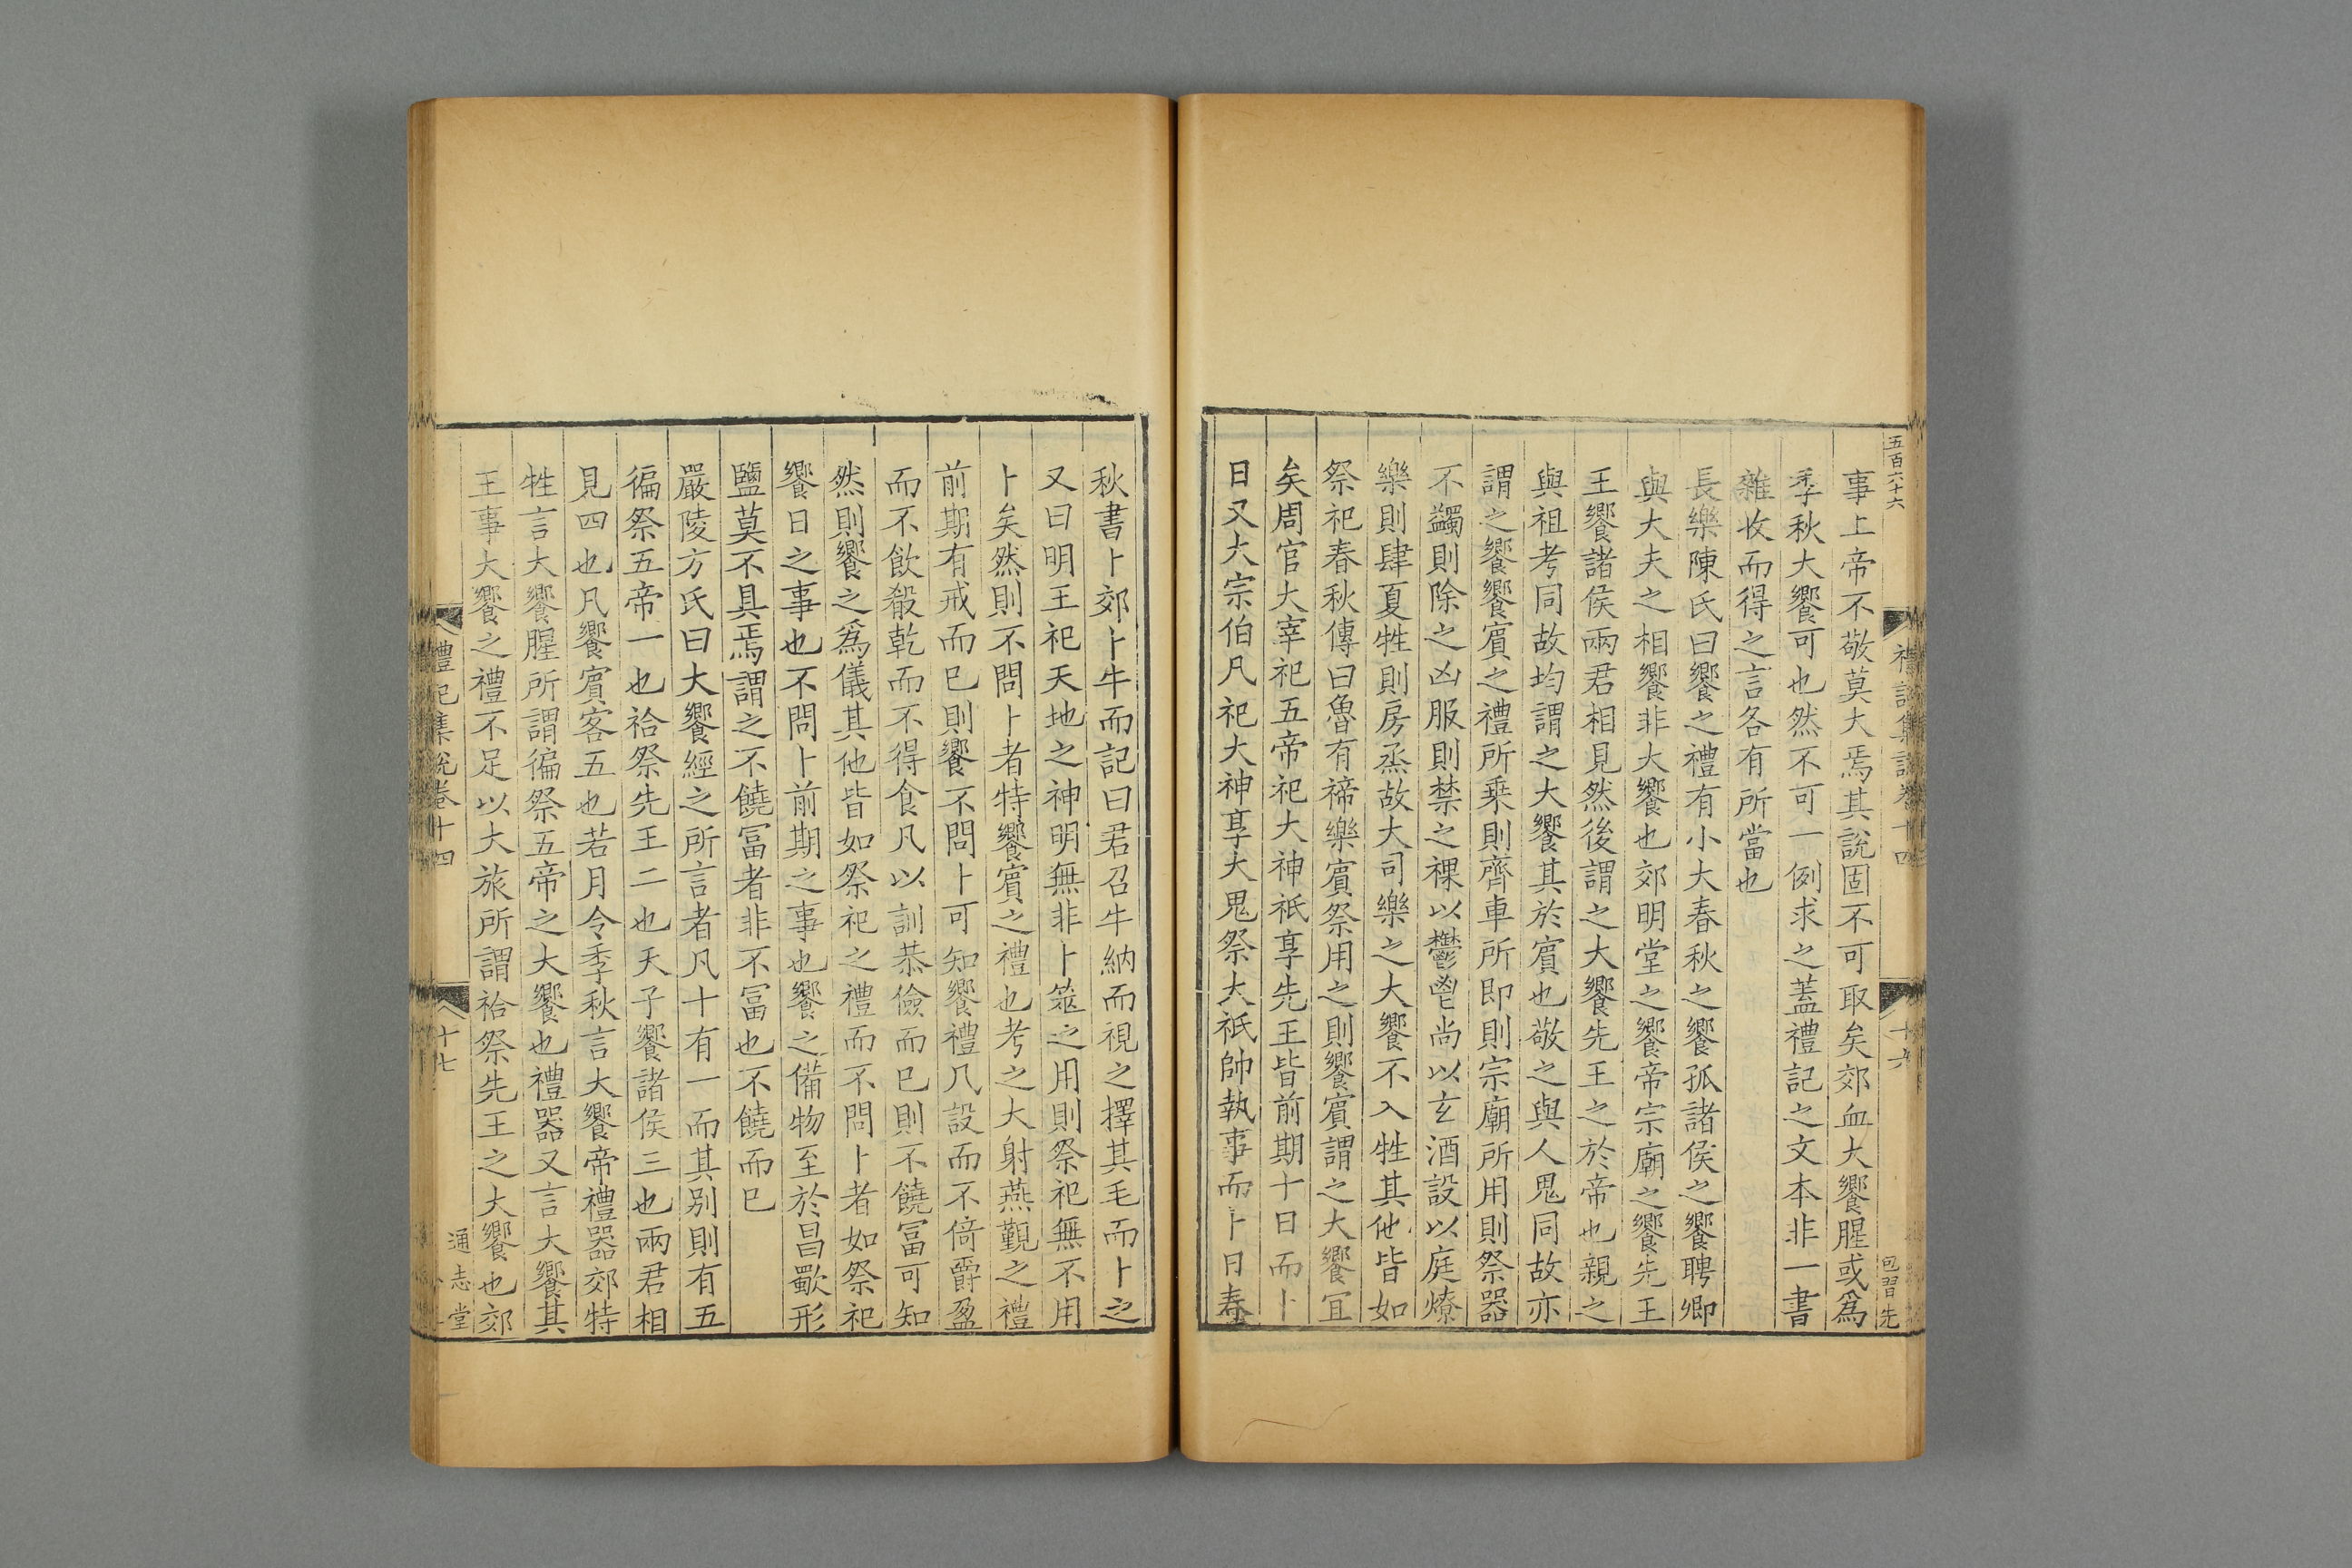 五百六十六
禮記集說卷十四
十六
包習先
事上帝不敬莫大焉其說固不可取矣郊血大饗腥或爲
季秋大饗可也然不可一例求之蓋禮記之文本非一書
雜收而得之言各有所當也
長樂陳氏曰饗之禮有小大春秋之饗孤諸侯之饗聘卿
與大夫之相饗非大饗也郊明堂之饗帝宗廟之饗先王
王饗諸侯兩君相見然後謂之大饗先王之於帝也親之
與祖考同故均謂之大饗其於賓也敬之與人鬼同故亦
謂之饗饗賓之禮所乗則齊車所即則宗廟所用則祭器
不蠲則除之凶服則禁之祼以鬱鬯尚以玄酒設以庭燎
樂則肆夏牲則房烝故大司樂之大饗不入牲其他皆如
祭祀春秋傳曰魯有禘樂賓祭用之則饗賓謂之大饗宜
矣周官大宰祀五帝祀大神祇享先王皆前期十日而卜
日又大宗伯凡祀大神享大鬼祭大祇帥執事而卜日春
秋書卜郊卜牛而記曰君召牛納而視之擇其毛而卜之
又曰明王祀天地之神明無非卜筮之用則祭祀無不用
卜矣然則不問卜者特饗賓之禮也考之大射燕覲之禮
前期有戒而已則饗不問卜可知饗禮几設而不倚爵盈
而不飲殽乾而不得食凡以訓恭儉而已則不饒冨可知
然則饗之爲儀其他皆如祭祀之禮而不問卜者如祭祀
饗日之事也不問卜前期之事也饗之備物至於昌歜形
鹽莫不具焉謂之不饒冨者非不冨也不饒而已
嚴陵方氏曰大饗經之所言者凡十有一而其别則有五
徧祭五帝一也祫祭先王二也天子饗諸侯三也兩君相
見四也凡饗賓客五也若月令季秋言大饗帝禮器郊特
牲言大饗腥所謂徧祭五帝之大饗也禮器又言大饗其
王事大饗之禮不足以大旅所謂祫祭先王之大饗也郊
禮記集說卷十四
十七
通志堂